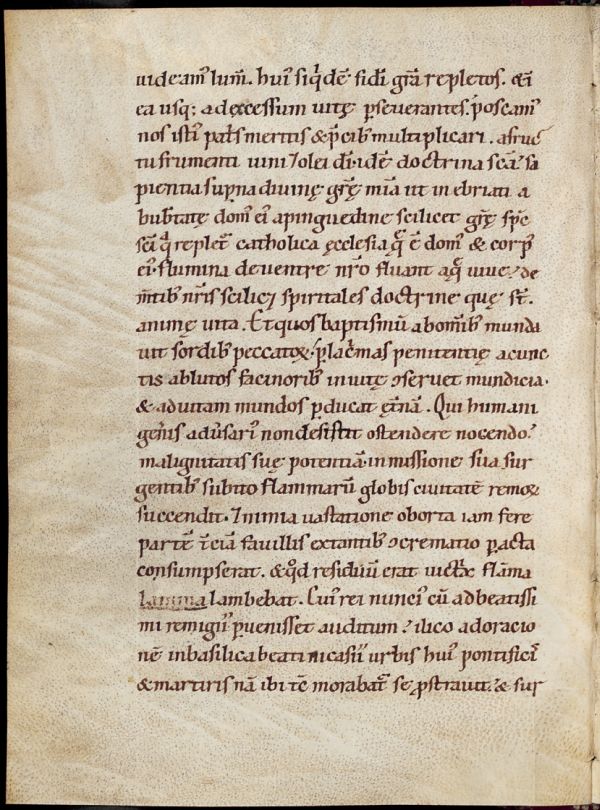 uideam᷒ lum̄. hui᷒ siq́dē fidei gr̄a repletos. &ī
ea usq; ad excessum uitę p̱seuerantes. p̄oscam᷒
nos isti᷒ pat̄s meritis & p̄cib᷒ multiplicari. a fruc
tu frumenti uini ⁊ olei dī. idē doctrina scā. sa
pientia sup̱na diuinę gr̄ę mīa ut inebriati a
bub̄tatę dom᷒ ei᷒ a pinguedine scilicet gr̄ę sp̄c
sc̄i q̄ replet᷒ catholica ęcclesia q̄ ē dom᷒ & corp᷒
ei᷒. flumina de uentre nr̄o fluant aq̄ uiuę. de
m̄tib᷒ nr̄is scilic& spiritales doctrine quę st̄.
animę uita. Et quos baptismū ab om̄ib᷒ munda
uit sordib᷒ peccatoꝝ. p̱ lac̄mas penitentię a cunc
tis ablutos facinorib᷒ in uitę ꝯseruet mundicia.
& ad uitam mundos p̱ducat ęt̄nā. Qui humani
gen̄is adūsari᷒ non desistit ostendere nocendo.
malignitatis suę potentiā. inmissione sua sur
gentib᷒ subito flammarū globis ciuitatē remoꝝ
succendit. Inimia uastatione oborta iam fere
partē t̄ciā fauillis extantib᷒ ꝯcrematio p̱acta
consumpserat. & qd̄ residuū erat uictx̄ flāma
lamma lambebat. Cui᷒ rei nunci᷒ cū ad beatissi
mi remigii᷒ p̱uenisset auditum. ilico ad oracio
nē in basilica beati nicasii urbis hui᷒ pontifici᷒
& martiris nā ibi tē morabat᷒ se p̱strauit. & sur